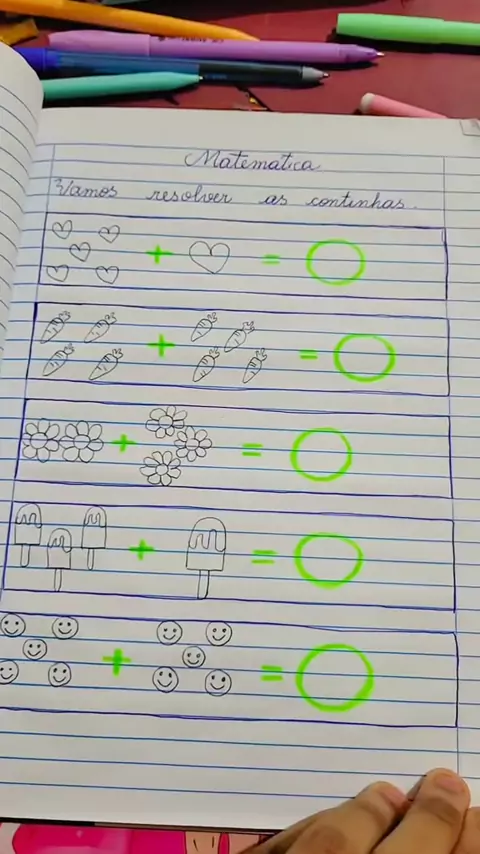 Matematica
Vamos resolver as continhas.
+ =
+ =
+ =
+ =
+ =